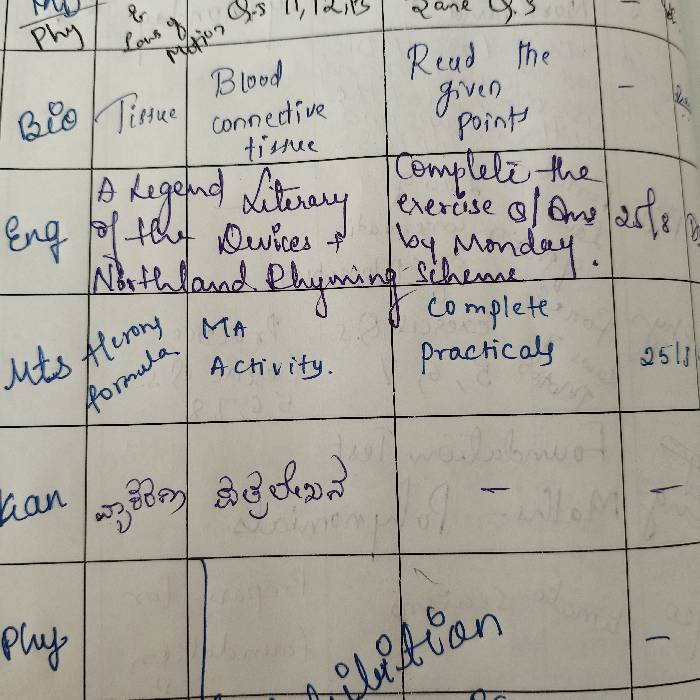 Phy & Laws of Motion Q.s 11,12,13 Q.3 -
Bio Tissue Blood connective tissue Read the given points -
Eng A Legend of the Northland Literary Devices + Rhyming scheme Complete the exercise Q/Ans by Monday. 25/8
Mts Herons formula MA Activity. Complete practicals 25/8
Kan ವ್ಯಾಕರಣ - -
Phy -